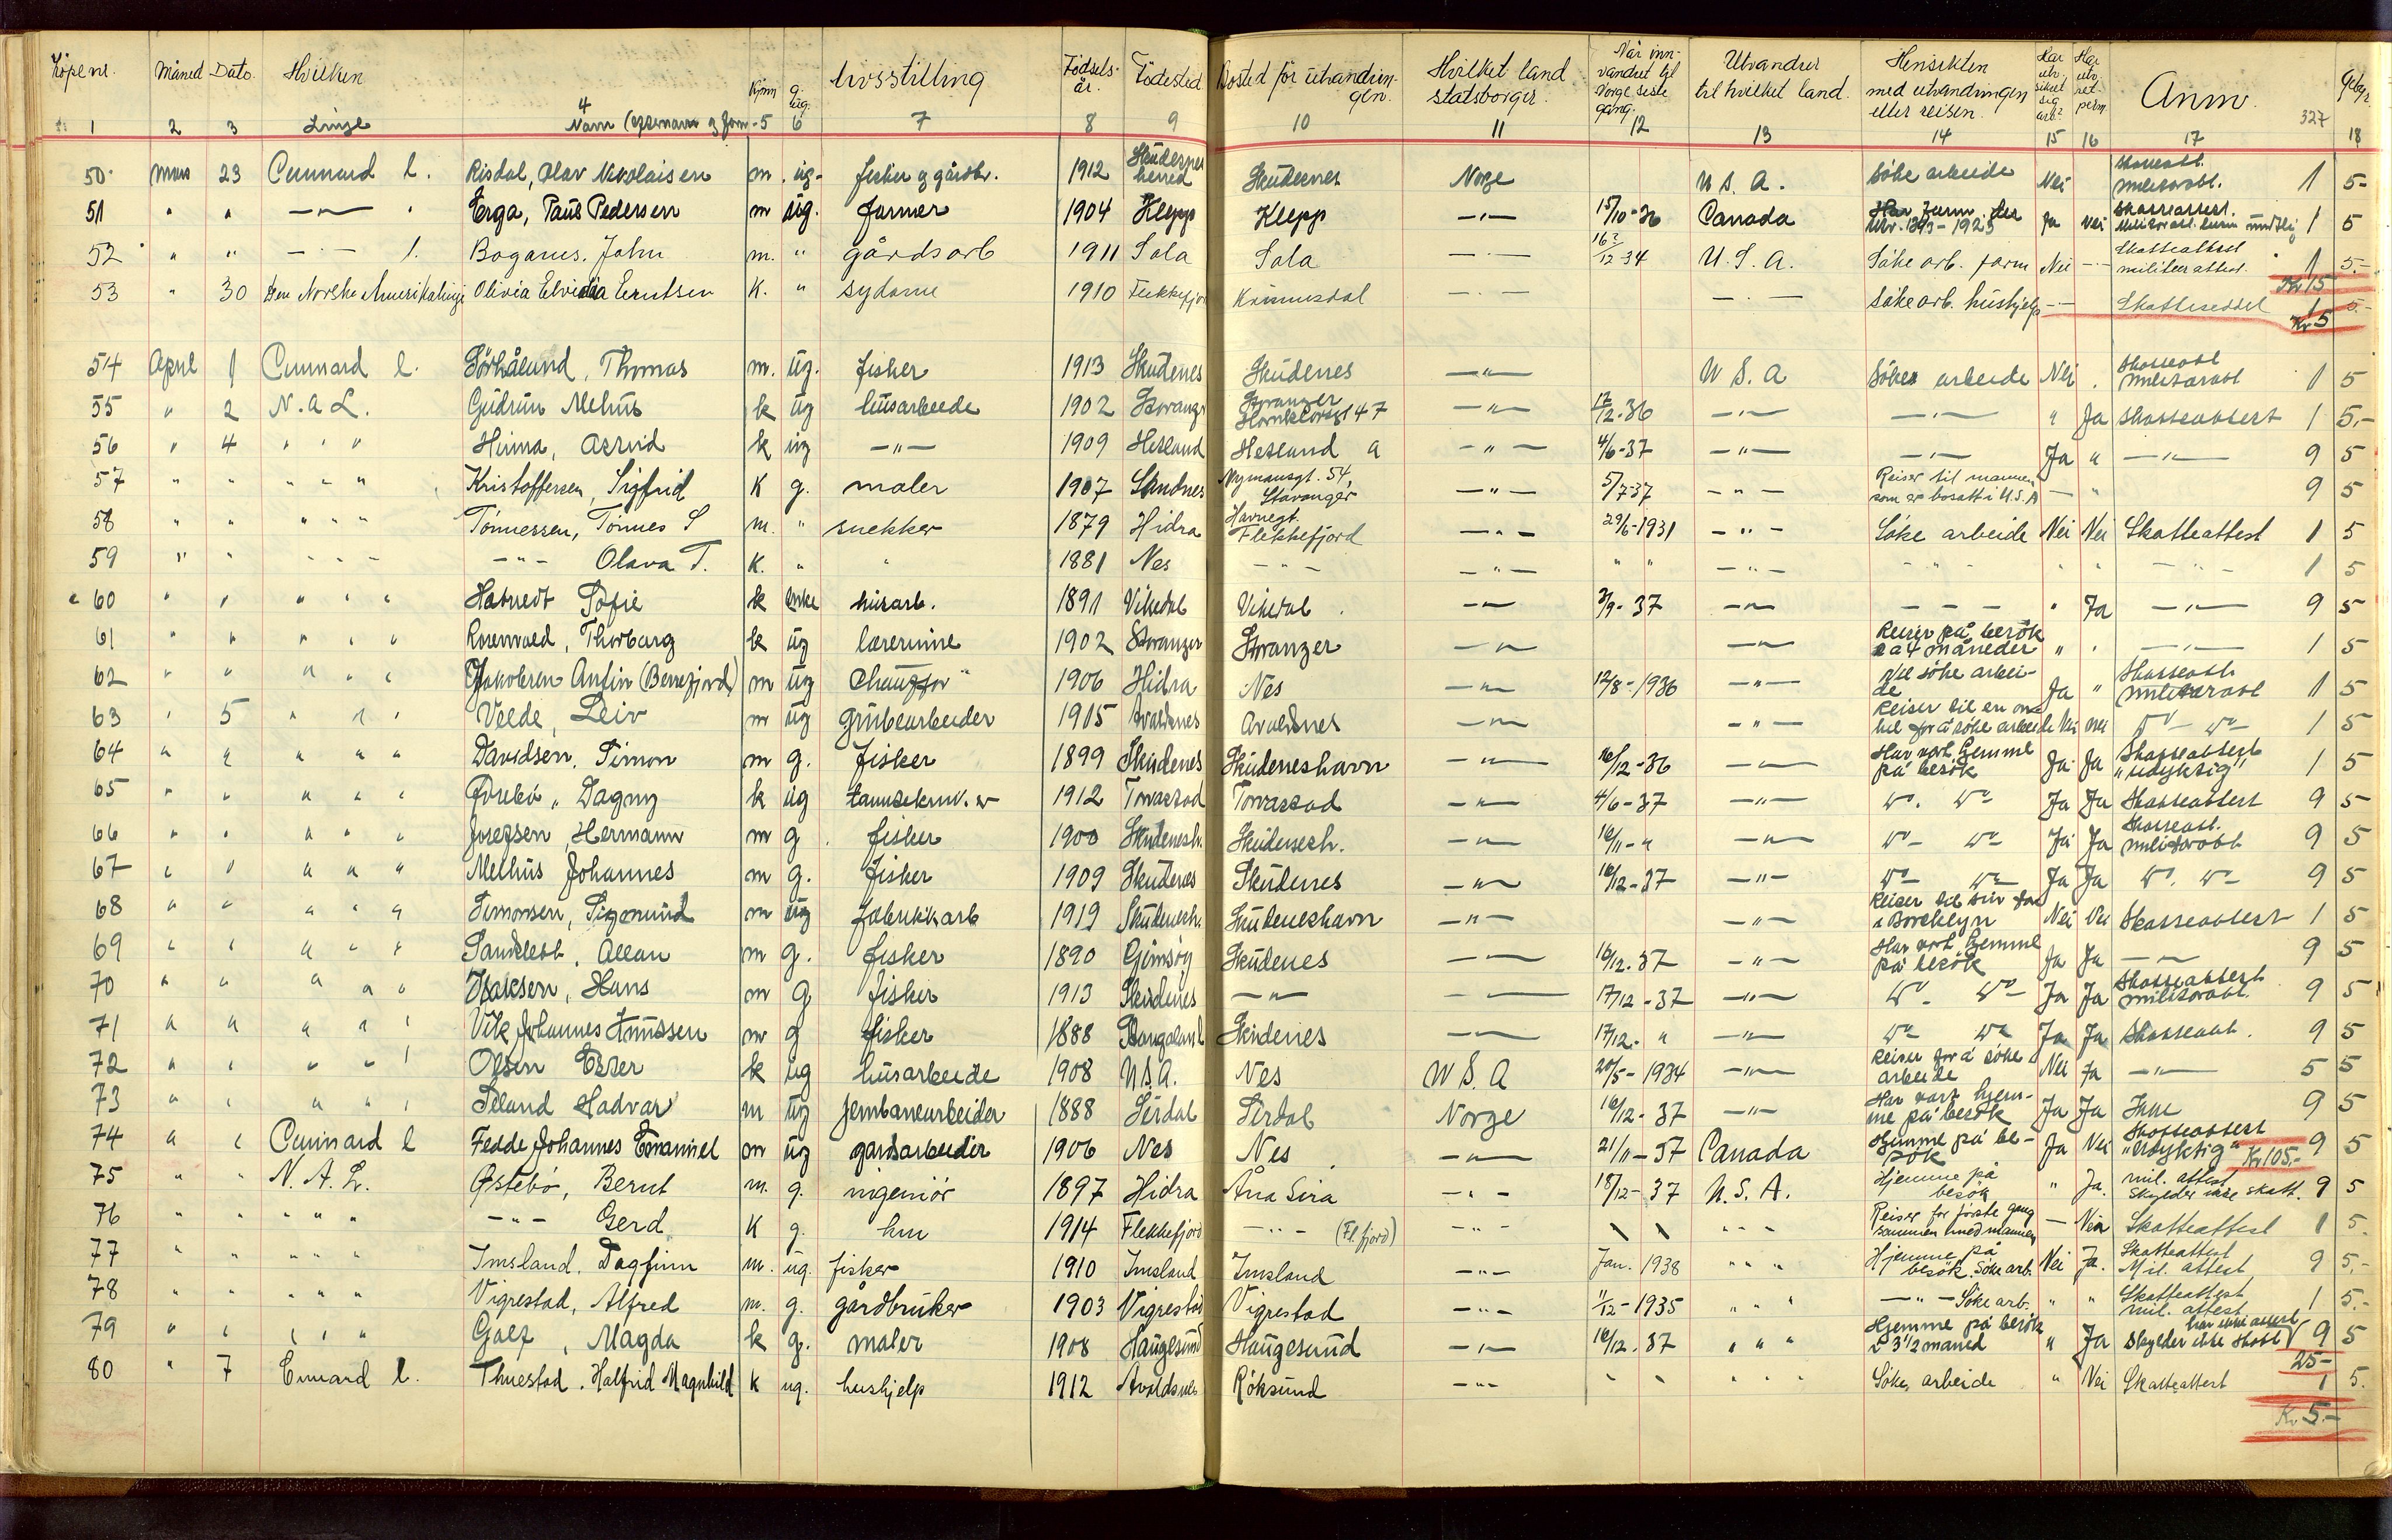 Löpe nr. Måned Dato. Hvilken Linje Navn Kjönn g. ug. livsstilling Födsels-år. Födested Bosted för utvandringen. Hvilket land statsborger. Når innvandret til Norge siste gang. Utvandrer til hvilket land. Hensikten med utvandringen eller reisen. Har utv. sikret sig arb? Har utv. ret. perm. Anm. 327 Gebyr
1 2 3 4 5 6 7 8 9 10 11 12 13 14 15 16 17 18
50 mars 23 Cunnard l. Risdal, Olav Nikolaisen m. ug. fisker og gårdbr. 1912 Skudenes herred Skudenes Norge U.S.A. Söke arbeide Nei Skatteatt. Militæratt. 1 5-
51 " " —"— Erga, Paul Pedersen m ug. farmer 1904 Klepp Klepp —"— 15/10-36 Canada Har farm der Utv. 1893-1923 Ja Nei Skatteattest. 1 5
52 " " —"— l. Boganes, John m. " gårdsarb 1911 Sola Sola —"— 12-34 U.S.A. Söke arb. farm Nei —"— Skatteattest militærattest. 1 5.-
Kr 15
53 " 30 Den Norske Amerikalinje Olivia Elvidia Erntsen K. " sydame 1910 Flekkefjord —"— —"— Söke arb. hushjelp —"— Skatteseddel 1 5.-
Kr 5
54 April 1 Cunnard l. Sörhåland, Thomas m. ug. fisker 1913 Skudenes Skudenes —"— U.S.A Söke arbeide Nei . Skatteatt militæratt 1 5
55 " 2 N.A.L. Gudrun Melhus k ug husarbeide 1902 Stavanger Stavanger 47 —"— 17/12-36 —"— —"— " Ja Skatteattest 1 5.-
56 " 4 " " " Hinna, Astrid k ug —"— 1909 Hetland Hetland a —"— 4/6-37 —"— —"— Ja " —"— 9 5
57 " " " " " Kristoffersen, Sigfrid K g. maler 1907 Sandnes Nymansgt. 54, Stavanger —"— 5/7-37 —"— Reiser til mannen som er bosatt i U.S.A — " 9 5
58 " " " " " Tönnessen, Tönnes S m. " snekker 1879 Hidra Havnegt. Flekkefjord —"— 29/6-1931 —"— Söke arbeide Nei Nei Skatteattest 1 5
59 " " " " " —"— Olava T. K. " " 1881 Nes —"— —"— " " —"— " " " " " —"— 1 5
60 " " " " " Hatvedt Sofie k enke husarb. 1891 Vikedal Vikedal —"— 3/9-37 —"— — — — " Ja —"— 9 5-
61 " " " " " Thorborg k ug lærerinne 1902 Stavanger Stavanger —"— —"— Reiser på besök 2 a 4 måneder " " —"— 1 5
62 " " " " " Jakobsen Anfin (Berrefjord) m ug Chauffør 1906 Hidra Nes —"— 12/8-1936 —"— Vil söke arbeide Ja " Skatteatt. militæratt 1 5
63 " 5 " " " Velde, Leiv m ug grubearbeider 1915 Avaldnes Avaldnes —"— —"— Reiser til en onkel for å söke arbeide Nei Nei do- do- 1 5
64 " " " " " Davidsen, Simon m g. fisker 1899 Skudenes Skudeneshavn —"— 16/12-36 —"— Har vært hjemme på besök Ja Ja Skatteattest, "udyktig" 1 5
65 " " " " " Dagny k ug 1912 Torvastad Torvastad —"— 4/6-37 —"— do- do- Ja Ja Skatteattest 9 5-
66 " " " " " Josefsen, Hermann m g fisker 1900 Skudenesh. Skudenesh. —"— 16/11- " —"— do- do- Ja Ja Skatteatt. militæratt 9 5
67 " " " " " Melhus Johannes m g. fisker 1909 Skudenes Skudenes —"— 16/12-37 —"— do- do- Ja Ja do- do- 9 5
68 " " " " " Simonsen, Sigmund m ug fabrikkarb 1919 Skudenesh. Skudeneshavn —"— —"— Reiser til sin far i Borcklyn Nei Nei Skatteattest 1 5
69 " " " " " Sandtest, Allan m g. fisker 1890 Gimsöy Skudenes —"— 16/12-37 —"— Har vært hjemme på besök Ja Ja —"— 9 5
70 " " " " " Isaksen, Hans m g fisker 1913 Skudenes —"— —"— 17/12-37 —"— do- do- Ja Ja Skatteattest militæratt. 9 5
71 " " " " " Vik, Johannes Knutsen m g fisker 1888 Stangaland Skudenes —"— 17/12- " —"— do- do- Ja Ja Skatteatt. 9 5
72 " " " " " Olsen Ester k ug husarbeide 1908 U.S.A. Nes U.S.A 20/5-1934 —"— Reiser for å söke arbeide Nei Ja —"— 5 5
73 " " " " " Seland Hadvar m ug jernbanearbeider 1888 Sirdal Sirdal Norge 16/12-37 —"— Har vært hjemme på besök Ja Ja Intet 9 5
74 " " Cunnard l Fedde Johannes Emanuel m ug gardsarbeider 1906 Nes Nes —"— 21/11-37 Canada Hjemme på besök Ja Nei Skatteattest "Udyktig" 9 5
Kr 105.-
75 " " N.A.L. Østebö, Bernt m. g. ingeniör 1897 Hidra Åna Sira —"— 18/12-37 U.S.A. Hjemme på besök " Ja. mil. attest skylder ikke skatt. 9 5
76 " " " " " —"— Gerd K g. hm 1914 Flekkefjord —"— (Fl.fjord) —"— \ \ " " " Reiser for förste gang sammen med mannen — Nei Skatteattest 1 5.
77 " " " " " Imsland, Dagfinn m. ug. fisker 1910 Imsland Imsland —"— Jan. 1938 " " " Hjemme på besök. Söke arb. Nei Ja. Skatteattest Mil. attest 9 5,-
78 " " " " " Vigrestad, Alfred m. g. gårdbruker 1903 Vigrestad Vigrestad —"— 11/12-1935 " " " —"— Söke arb. " " Skatteattest mil. attest 1 5.-
79 " " " " " Galf, Magda k g. maler 1908 Haugesund Haugesund —"— 16/12.37 " " " Hjemme på besök 3 1/2 måned " Ja har ikke attest skylder ikke skatt 9 5
25-
80 " 7 Cunard l. Thuestad, Halfrid Magnhild K ug. hushjelp 1912 Avaldsnes Röksund —"— " " " " " Söke arbeide " Nei Skatteattest 1 5.
Kr 5.-